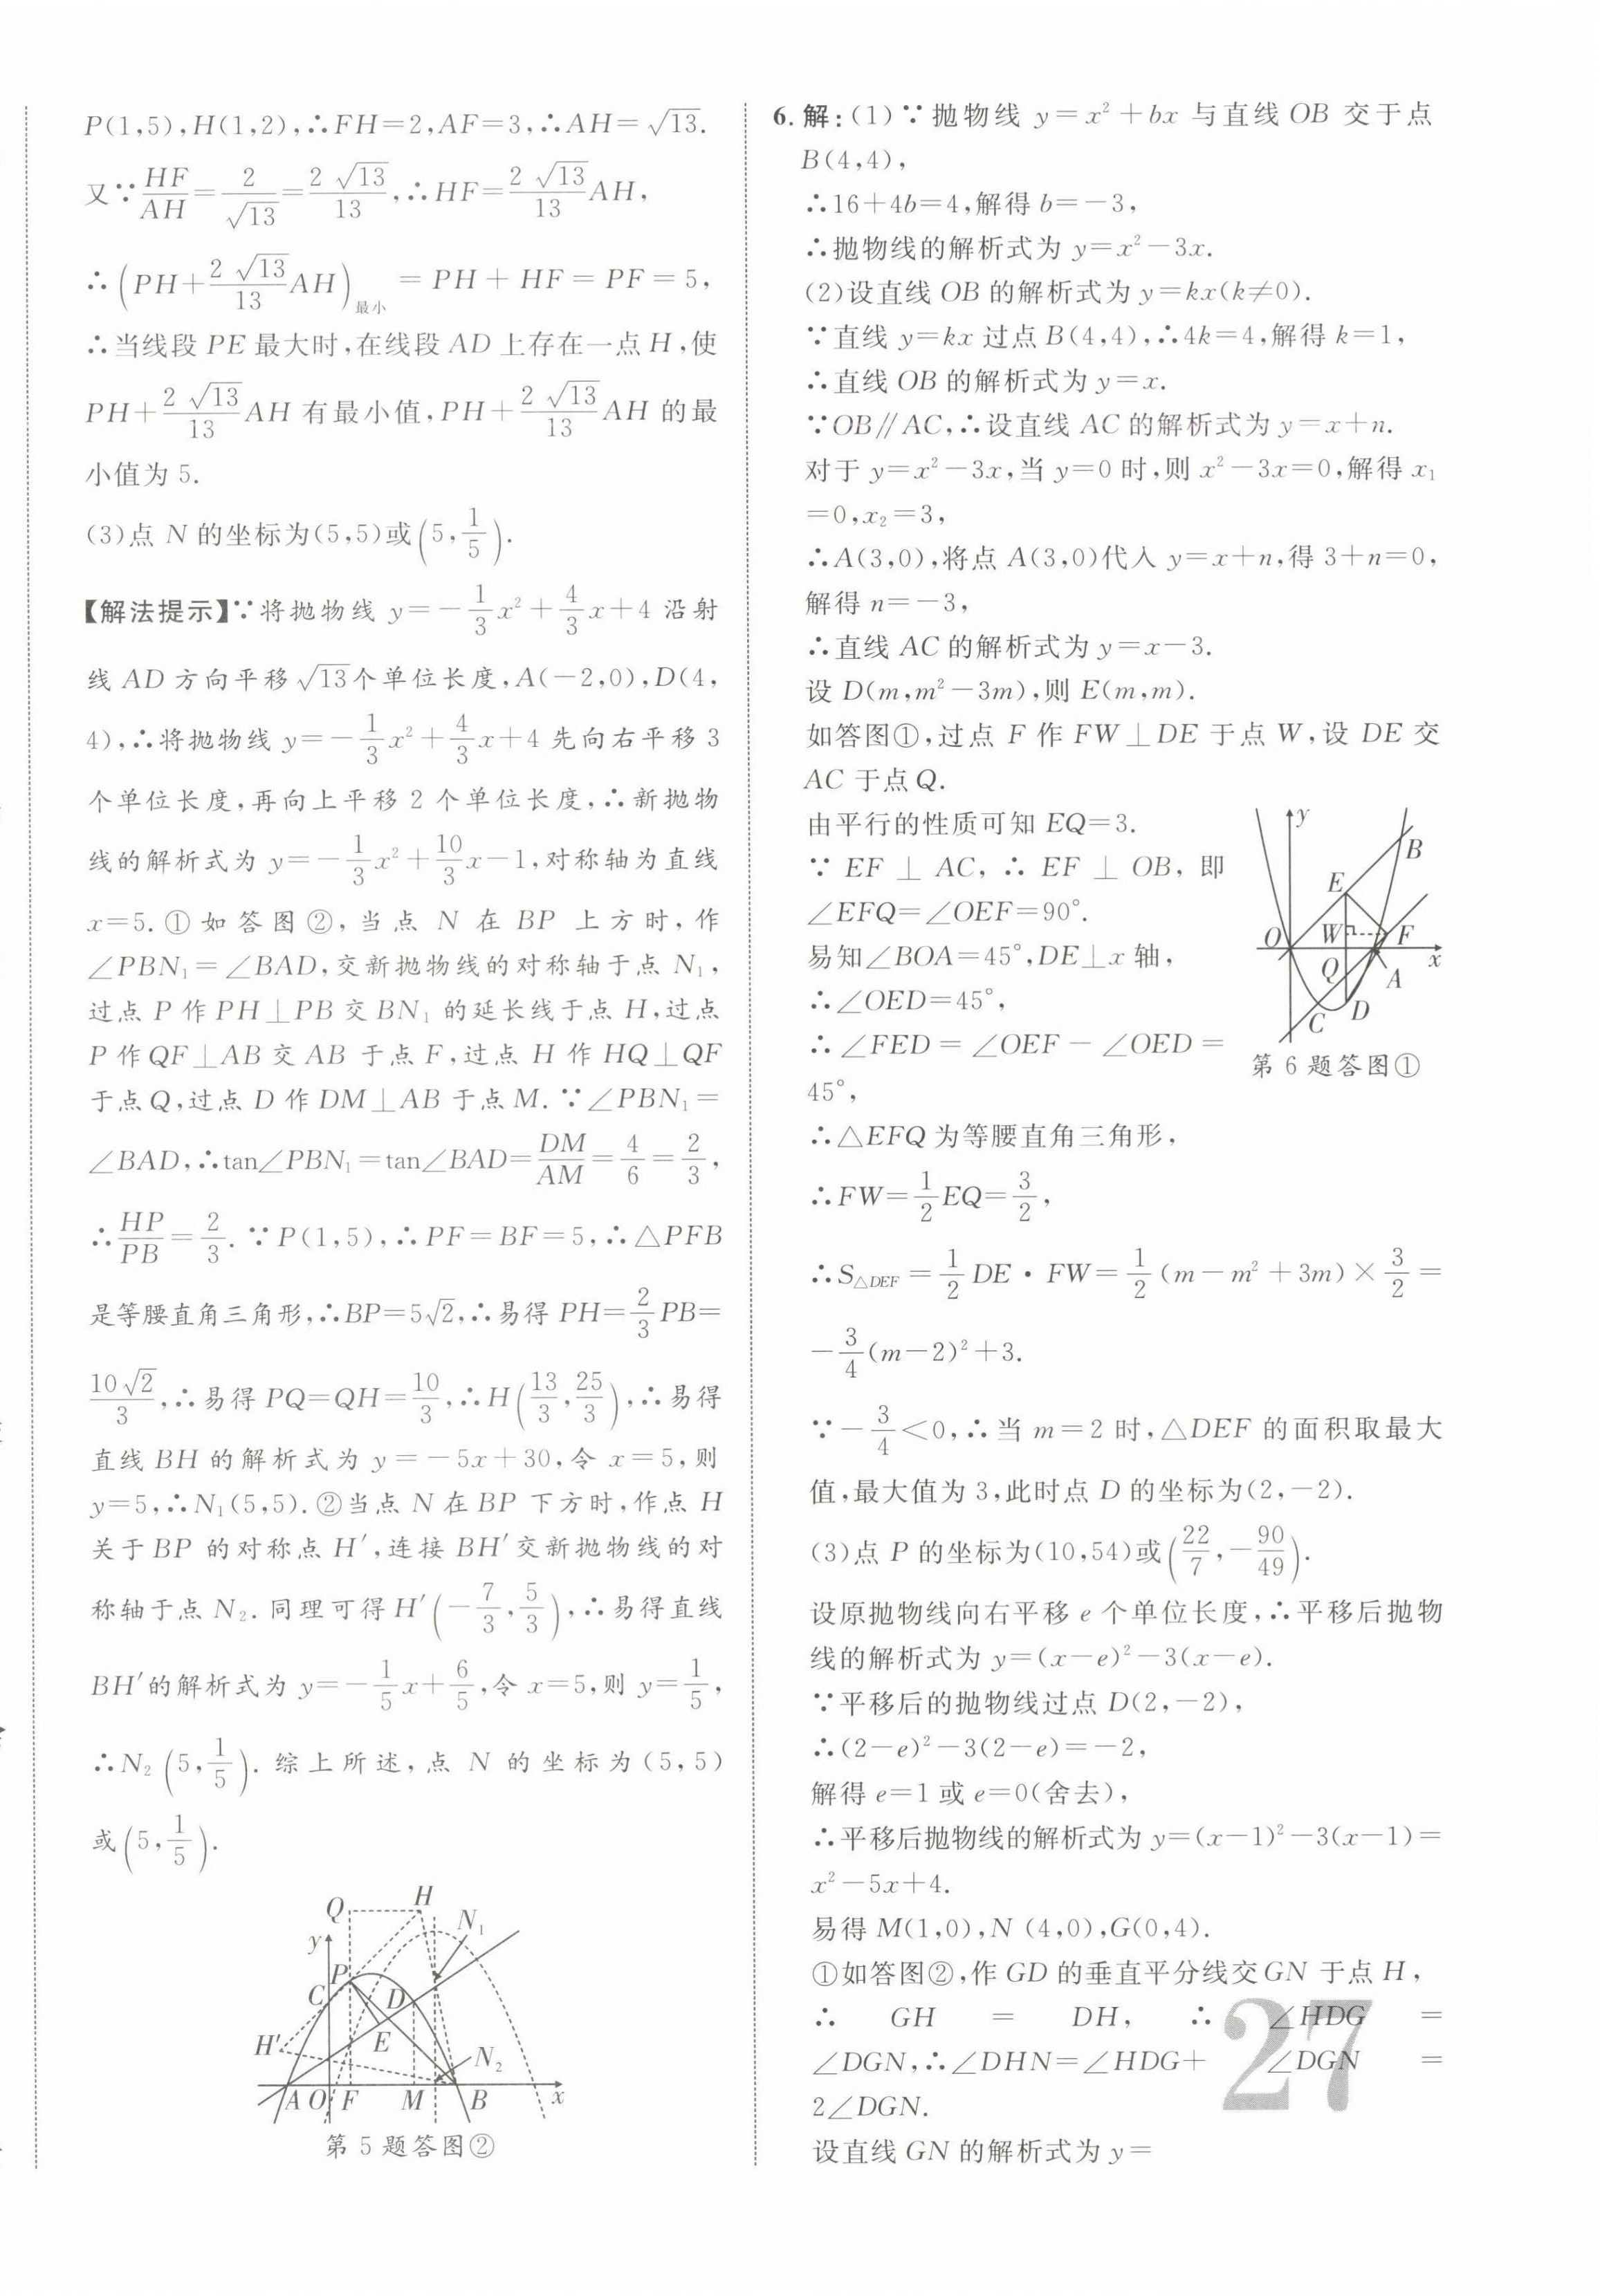 P(1,5),H(1,2),∴FH=2,AF=3,∴AH=√13.
又∵HF/AH=2/√13=2√13/13,∴HF=2√13/13AH,
∴(PH+2√13/13AH)最小=PH+HF=PF=5,
∴当线段PE最大时,在线段AD上存在一点H,使
PH+2√13/13AH有最小值,PH+2√13/13AH的最
小值为5.
(3)点N的坐标为(5,5)或(5,1/5).
【解法提示】∵将抛物线y=-1/3x²+4/3x+4沿射
线AD方向平移√13个单位长度,A(-2,0),D(4,
4),∴将抛物线y=-1/3x²+4/3x+4先向右平移3
个单位长度,再向上平移2个单位长度,∴新抛物
线的解析式为y=-1/3x²+10/3x-1,对称轴为直线
x=5.①如答图②,当点N在BP上方时,作
∠PBN₁=∠BAD,交新抛物线的对称轴于点N₁,
过点P作PH⊥PB交BN₁的延长线于点H,过点
P作QF⊥AB交AB于点F,过点H作HQ⊥QF
于点Q,过点D作DM⊥AB于点M.∵∠PBN₁=
∠BAD,∴tan∠PBN₁=tan∠BAD=DM/AM=4/6=2/3,
∴HP/PB=2/3.∵P(1,5),∴PF=BF=5,∴△PFB
是等腰直角三角形,∴BP=5√2,∴易得PH=2/3PB=
10√2/3,∴易得PQ=QH=10/3,∴H(13/3,25/3),∴易得
直线BH的解析式为y=-5x+30,令x=5,则
y=5,∴N₁(5,5).②当点N在BP下方时,作点H
关于BP的对称点H′,连接BH′交新抛物线的对
称轴于点N₂.同理可得H′(-7/3,5/3),∴易得直线
BH′的解析式为y=-1/5x+6/5,令x=5,则y=1/5,
∴N₂(5,1/5).综上所述,点N的坐标为(5,5)
或(5,1/5).
Q H
N₁
y
P
C D
H′ E
N₂
A O F M B x
第5题答图②
6.解:(1)∵抛物线y=x²+bx与直线OB交于点
B(4,4),
∴16+4b=4,解得b=-3,
∴抛物线的解析式为y=x²-3x.
(2)设直线OB的解析式为y=kx(k≠0).
∵直线y=kx过点B(4,4),∴4k=4,解得k=1,
∴直线OB的解析式为y=x.
∵OB∥AC,∴设直线AC的解析式为y=x+n.
对于y=x²-3x,当y=0时,则x²-3x=0,解得x₁
=0,x₂=3,
∴A(3,0),将点A(3,0)代入y=x+n,得3+n=0,
解得n=-3,
∴直线AC的解析式为y=x-3.
设D(m,m²-3m),则E(m,m).
如答图①,过点F作FW⊥DE于点W,设DE交
AC于点Q.
由平行的性质可知EQ=3.
∵EF⊥AC,∴EF⊥OB,即
∠EFQ=∠OEF=90°.
易知∠BOA=45°,DE⊥x轴,
∴∠OED=45°,
∴∠FED=∠OEF-∠OED=
45°,
y
B
E
O W F
x
Q A
C D
第6题答图①
∴△EFQ为等腰直角三角形,
∴FW=1/2EQ=3/2,
∴S△DEF=1/2DE·FW=1/2(m-m²+3m)×3/2=
-3/4(m-2)²+3.
∵-3/4<0,∴当m=2时,△DEF的面积取最大
值,最大值为3,此时点D的坐标为(2,-2).
(3)点P的坐标为(10,54)或(22/7,-90/49).
设原抛物线向右平移e个单位长度,∴平移后抛物
线的解析式为y=(x-e)²-3(x-e).
∵平移后的抛物线过点D(2,-2),
∴(2-e)²-3(2-e)=-2,
解得e=1或e=0(舍去),
∴平移后抛物线的解析式为y=(x-1)²-3(x-1)=
x²-5x+4.
易得M(1,0),N(4,0),G(0,4).
①如答图②,作GD的垂直平分线交GN于点H,
∴GH=DH,∴∠HDG=
∠DGN,∴∠DHN=∠HDG+∠DGN=
2∠DGN.
设直线GN的解析式为y=
27